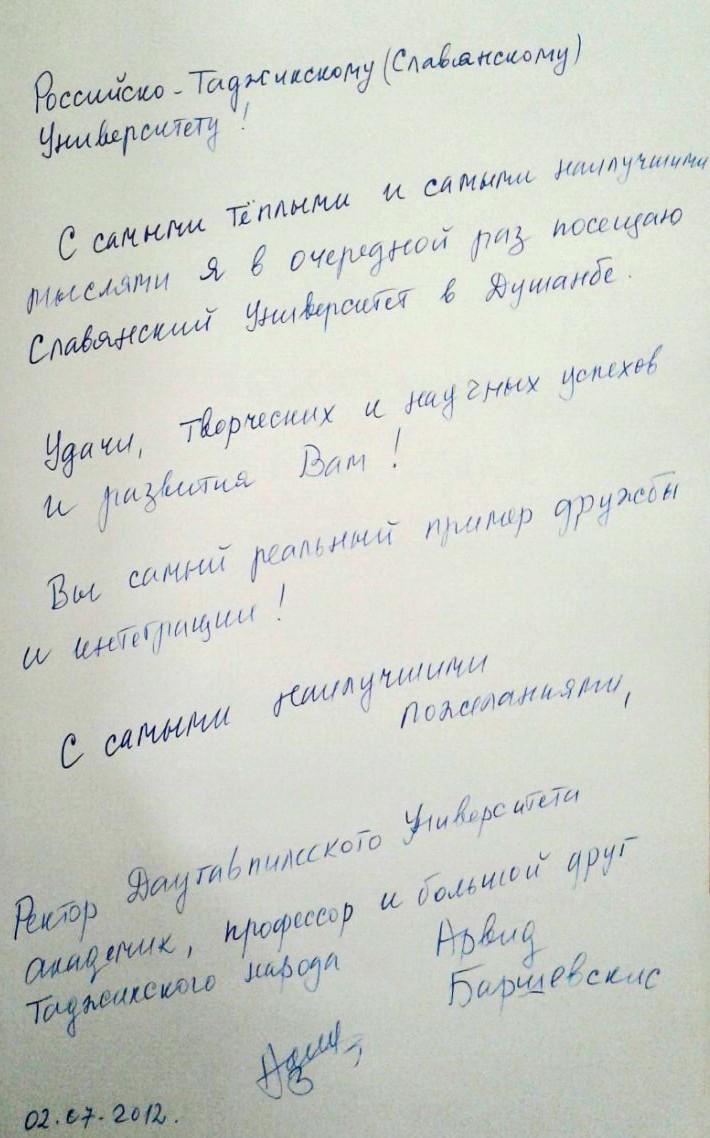 Российско-Таджикскому (Славянскому)
Университету!
С самыми тёплыми и самыми наилучшими
мыслями я в очередной раз посещаю
Славянский Университет в Душанбе.
Удачи, творческих и научных успехов
и развития Вам!
Вы самый реальный пример дружбы
и интеграции!
С самыми наилучшими
пожеланиями,
Ректор Даугавпилсского Университета
академик, профессор и большой друг
Таджикского народа Арвид
Баршевскис
02.07.2012.